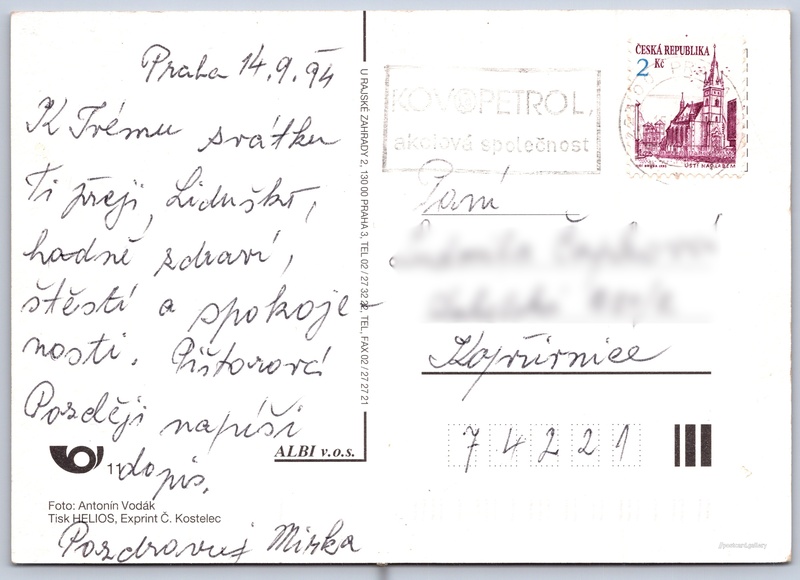 Praha 14.9.94
K Tvému svátku
Ti přeji, Liduško,
hodně zdraví,
štěstí a spokoje-
nosti. Pištorová
Později napíši
dopis.
Pozdravuj Mirka
11
ALBI v.o.s.
Foto: Antonín Vodák
Tisk HELIOS, Exprint Č. Kostelec
U RAJSKÉ ZAHRADY 2, 130 00 PRAHA 3, TEL 02 / 27 32 32, TEL. FAX 02 / 27 27 21
KOVOPETROL,
akciová společnost
ČESKÁ REPUBLIKA
2 Kč
ÚSTÍ NAD LABEM
Paní
Kopřivnice
74221